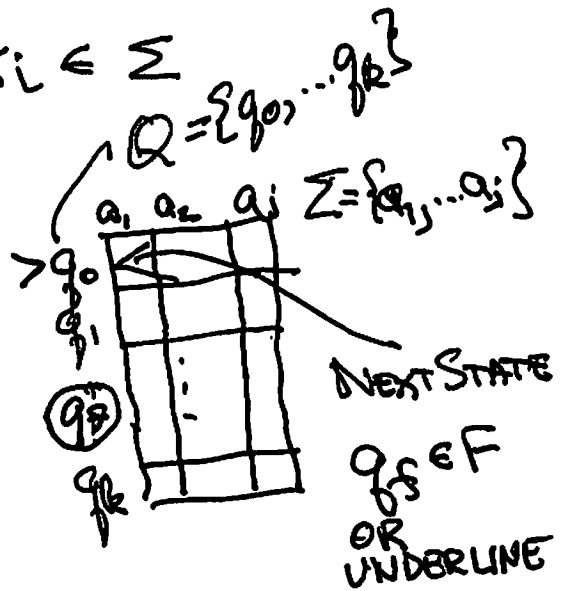 i ∈ Σ
Q = {q₀, ... qₖ}
a₁ a₂ aⱼ Σ = {a₁, ... aⱼ}
> q₀
q₁
NEXT STATE
qₖ
q_f ∈ F
OR
UNDERLINE